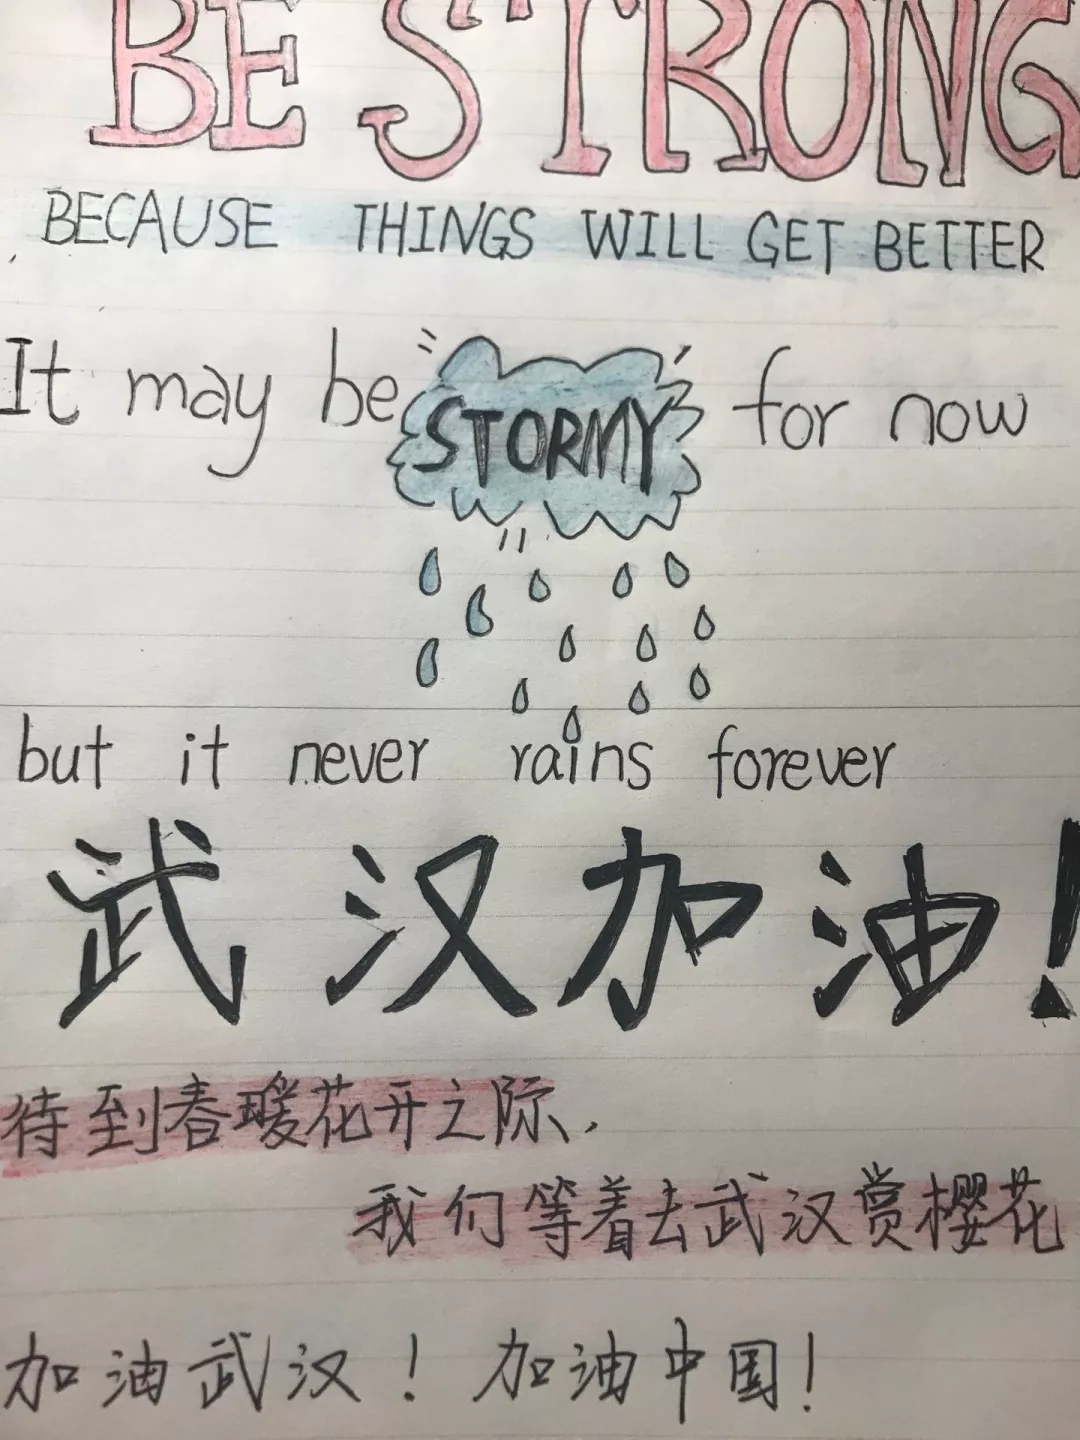 BE STRONG
BECAUSE THINGS WILL GET BETTER
It may be STORMY for now
but it never rains forever
武汉加油!
待到春暖花开之际,
我们等着去武汉赏樱花
加油武汉! 加油中国!